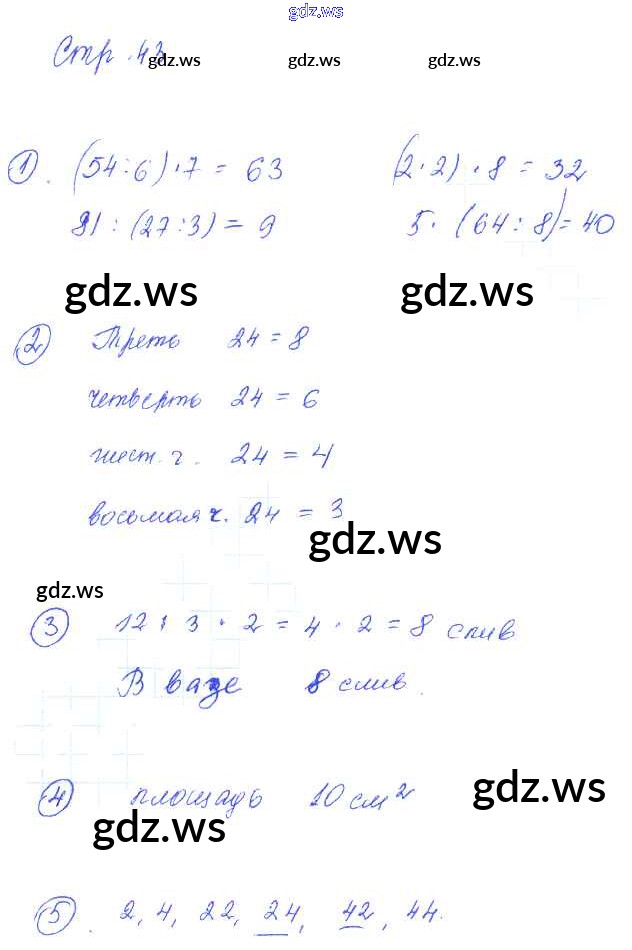 gdz.ws
Стр. 43
gdz.ws gdz.ws gdz.ws
1. (54:6)·7 = 63 (2·2)·8 = 32
81:(27:3) = 9 5·(64:8) = 40
gdz.ws gdz.ws
2 Треть 24 = 8
четверть 24 = 6
шест. ч. 24 = 4
восьмая ч. 24 = 3
gdz.ws
gdz.ws
3 12:3·2 = 4·2 = 8 слив
В вазе 8 слив.
4 площадь 10 см²
gdz.ws
gdz.ws
5. 2, 4, 22, 24, 42, 44.